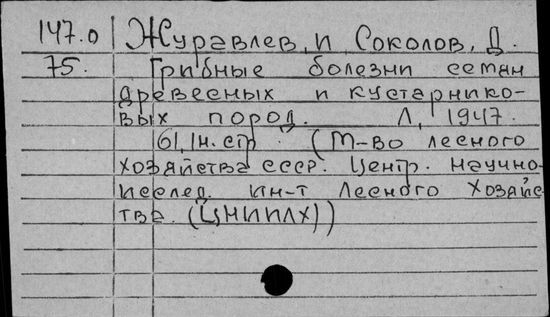 147.0 Журавлев, И Соколов, Д.
75. Грибные болезни семян
древесных и кустарнико-
вых пород. Л, 1947.
61, 1н. стр. (М-во лесного
хозяйства СССР. Центр. научно-
исслед. ин-т лесного хозяйс-
тва. (ЦНИИЛХ))